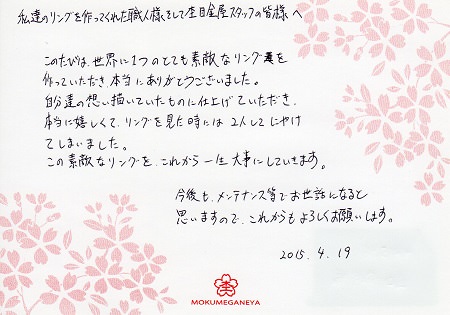 私達のリングを作ってくれた職人様、そして杢目金屋スタッフの皆様へ
このたびは、世界に1つのとても素敵なリングを
作っていただき、本当にありがとうございました。
自分達の想い描いていたものに仕上げていただき、
本当に嬉しくて、リングを見た時には2人してにやけ
てしまいました。
この素敵なリングを、これから一生大事にしていきます。
今後も、メンテナンス等でお世話になると
思いますので、これからもよろしくお願いします。
2015.4.19
杢
MOKUMEGANEYA